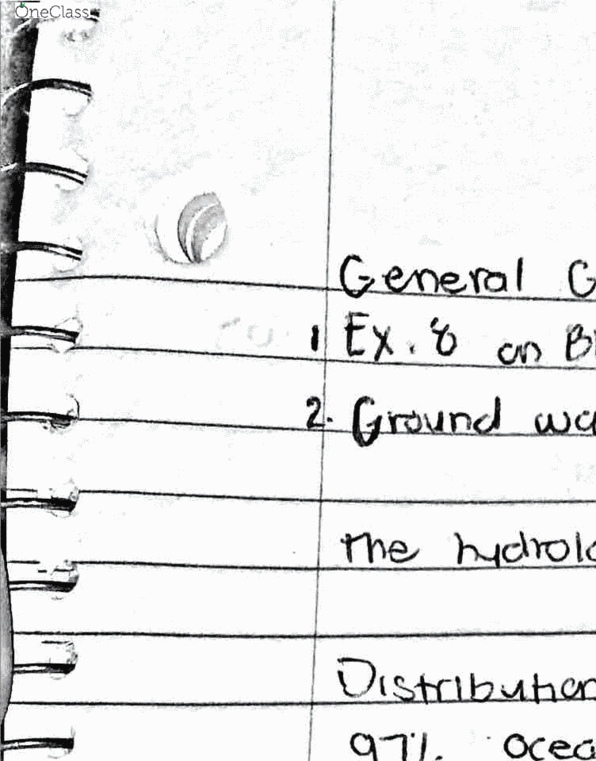 OneClass
General G
1 Ex. 8 on B
2. Ground wa
The hydrolo
Distribution
97% ocea